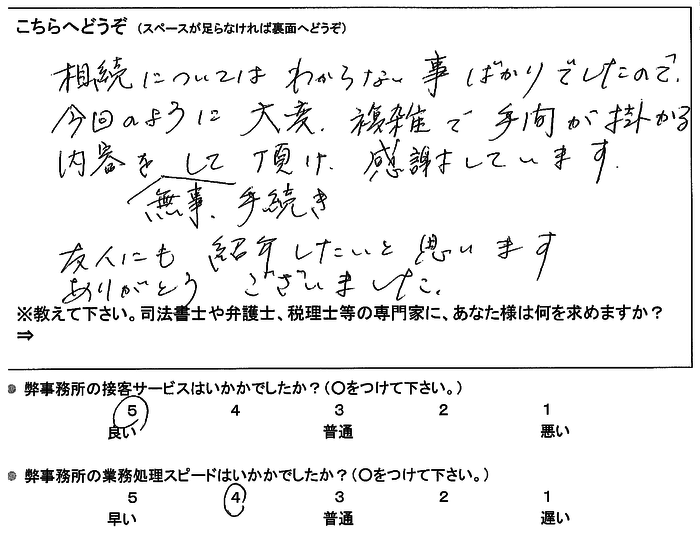 こちらへどうぞ (スペースが足らなければ裏面へどうぞ)
相続については わからない 事 ばかりでしたので、
今回のように 大変、複雑で 手間が掛かる
内容を して頂け、感謝しています。
無事、手続き
友人にも 紹介したいと 思います
ありがとう ございました。
※教えて下さい。司法書士や弁護士、税理士等の専門家に、あなた様は何を求めますか?
⇒
● 弊事務所の接客サービスはいかかでしたか?(〇をつけて下さい。)
5 4 3 2 1
良い 普通 悪い
● 弊事務所の業務処理スピードはいかかでしたか?(〇をつけて下さい。)
5 4 3 2 1
早い 普通 遅い